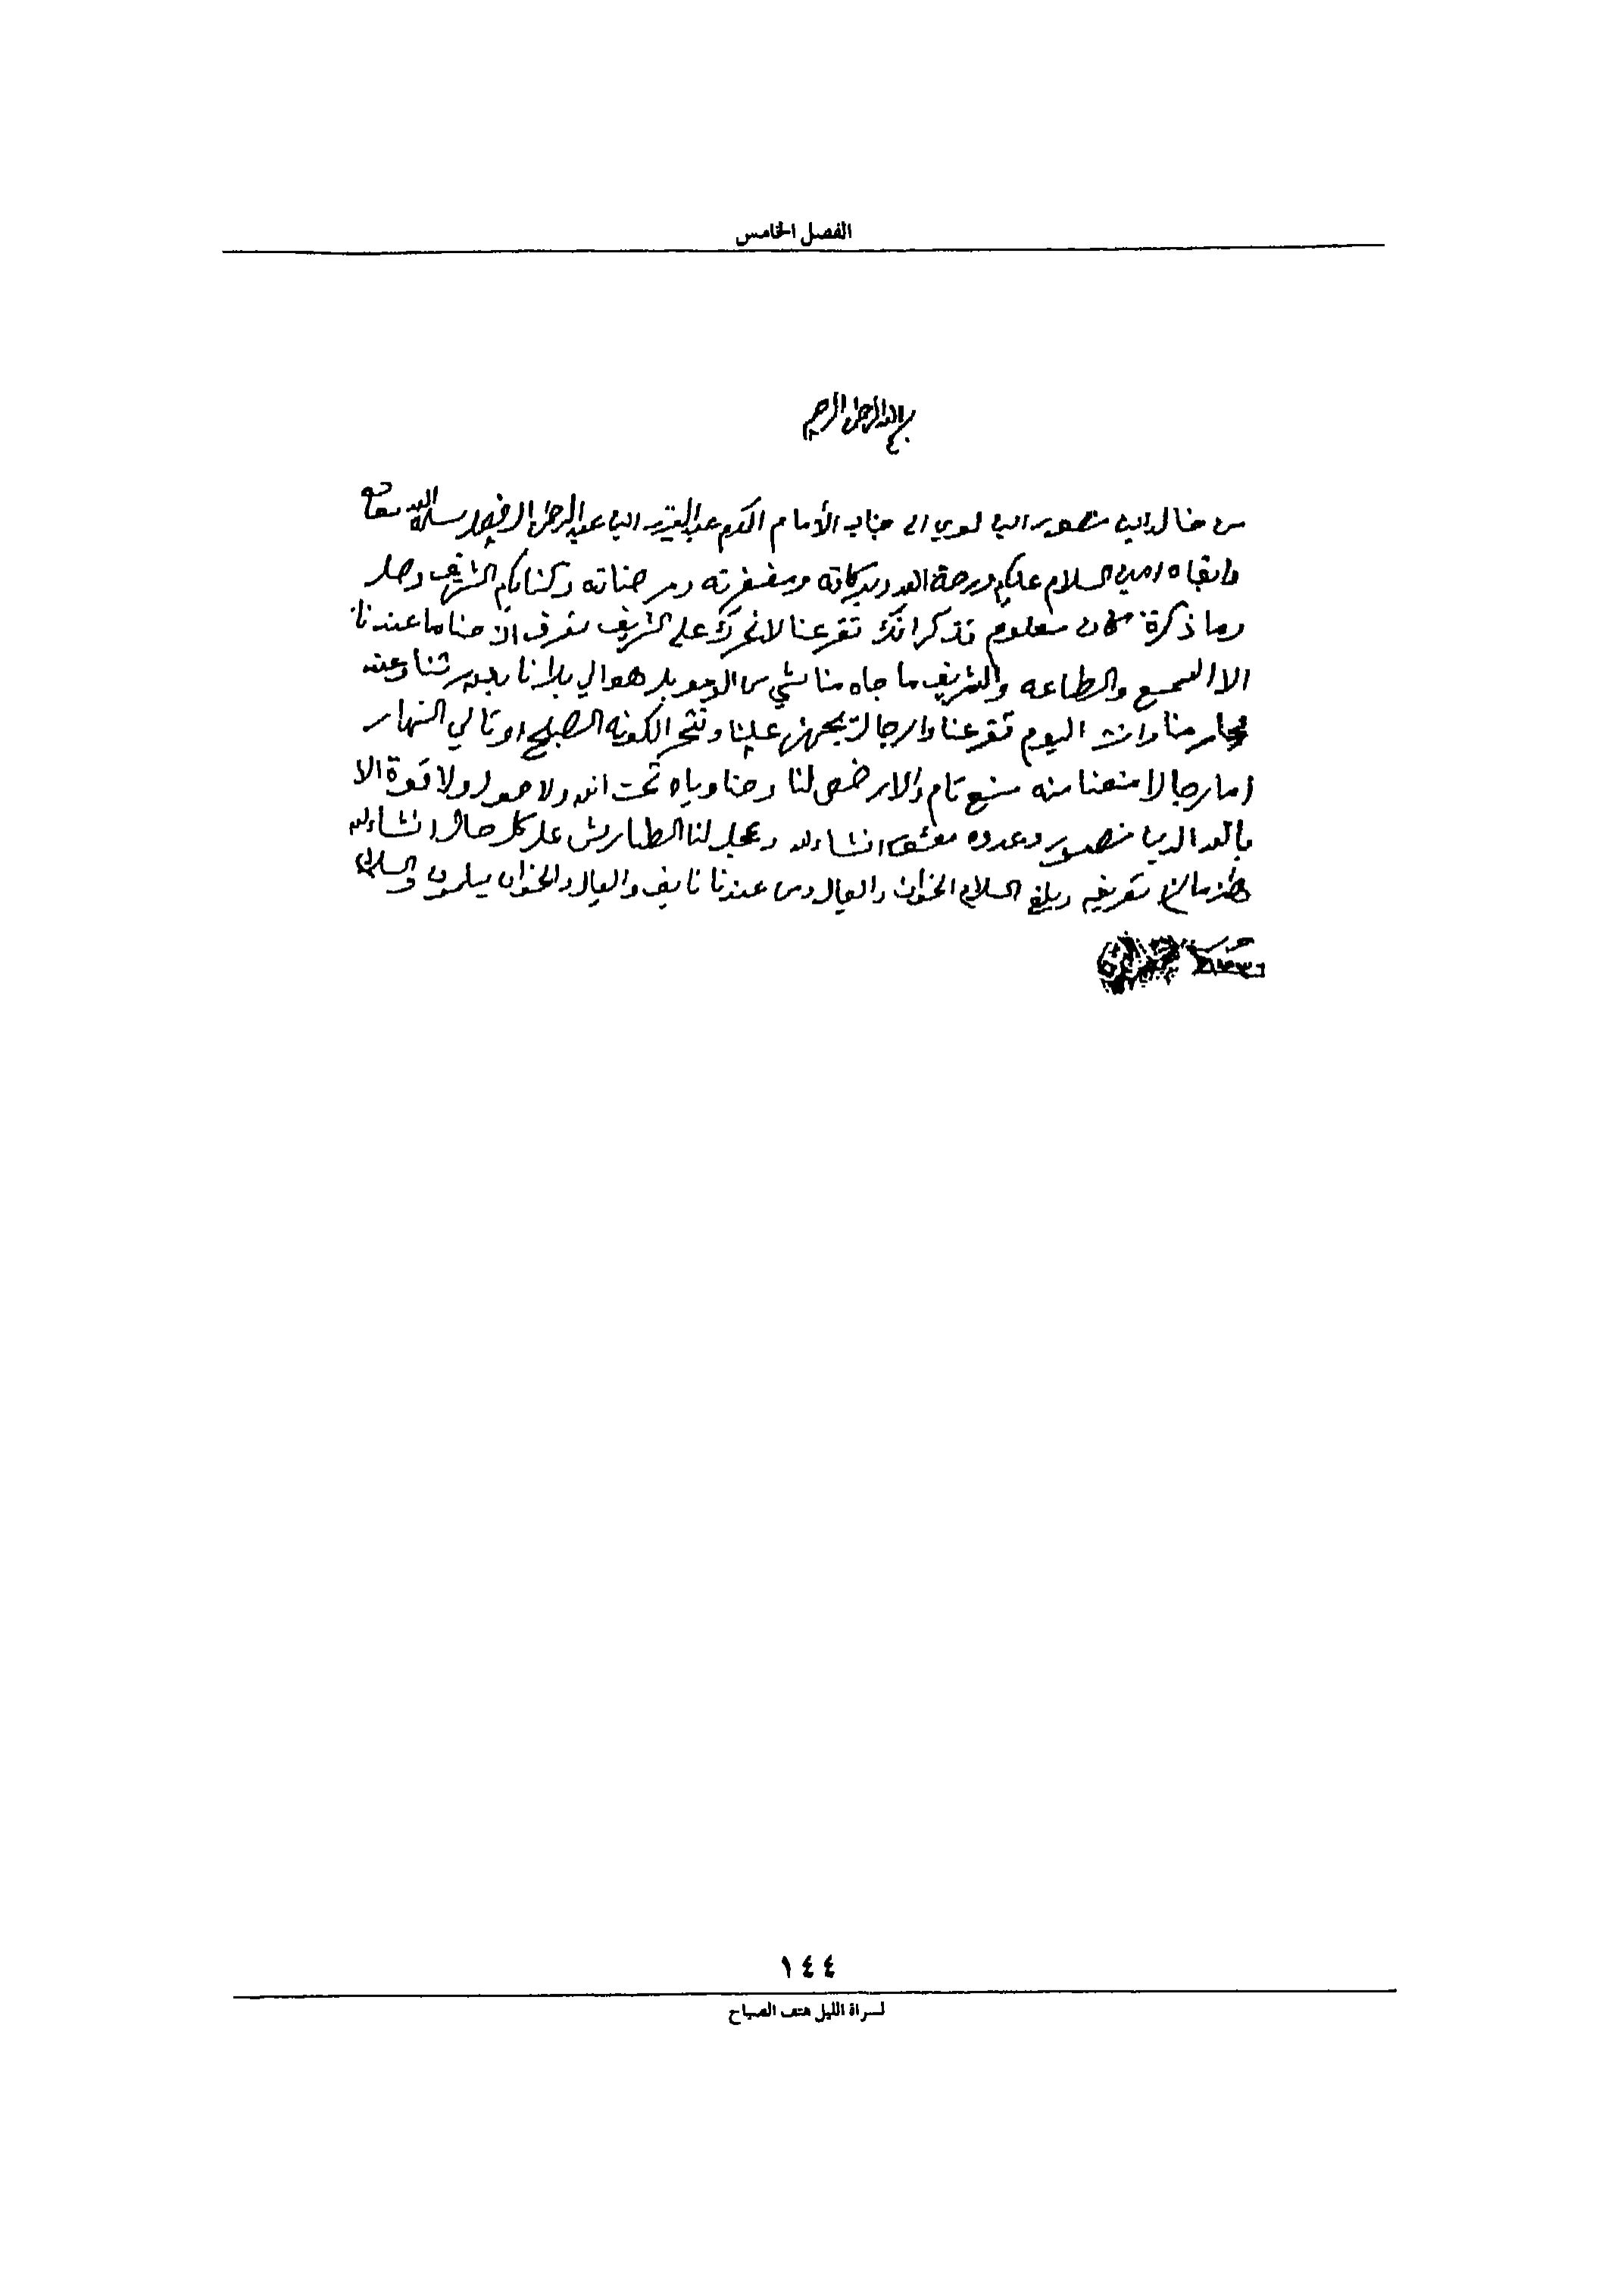 الفصل الخامس
بسم الله الرحمن الرحيم
من خالد ابن منصور ابن لوي الى جناب الأمام المكرم عبد العزيز ابن عبد الرحمن الفيصل سلمه الله تعا
وابقاه امين السلام عليكم ورحمة الله وبركاته ومغفرته ومرضاته وكتابكم الشريف وصل
وما ذكرة كان معلوم تذكر انك تقرعنا لا نحرك على الشريف تعرف ان حنا ما عندنا
الا السمع والطاعه والشريف ما جاه منا شي
منا وانت اليوم تقرعنا والرجال يجهز علينا الكونه الصبح او تالي النهار
اما رجال منعنا منه منع تام والارض لنا وحنا وياه تحت الله ولا حول ولا قوة الا
بالله الدين منصور وعدوه انشاء الله وعجل لنا الطارش على كل حال انشاء الله
هذا مالزم تعريفه وبلغ السلام الخوان والعيال ومن عندنا نايف والعيال والخوان يسلمون والسلام
١٤٤
لسراة الليل هتف الصباح